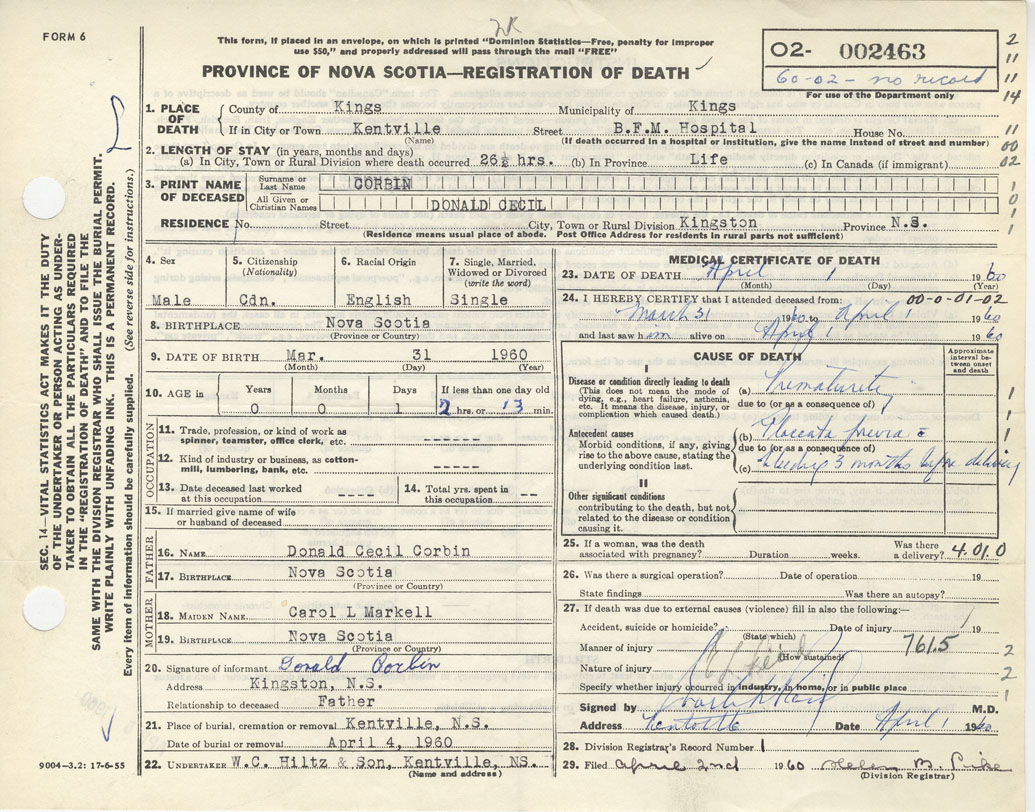 FORM 6
This form, if placed in an envelope, on which is printed "Dominion Statistics—Free, penalty for improper
use $50," and properly addressed will pass through the mail "FREE"
PROVINCE OF NOVA SCOTIA—REGISTRATION OF DEATH
02- 002463
60-02 - no record
For use of the Department only
2
11
11
14
11
00
02
1
0
1
SEC. 14—VITAL STATISTICS ACT MAKES IT THE DUTY
OF THE UNDERTAKER OR PERSON ACTING AS UNDER-
TAKER TO OBTAIN ALL THE PARTICULARS REQUIRED
IN THE "REGISTRATION OF DEATH" AND TO FILE THE
SAME WITH THE DIVISION REGISTRAR WHO SHALL ISSUE THE BURIAL PERMIT.
WRITE PLAINLY WITH UNFADING INK. THIS IS A PERMANENT RECORD.
Every item of information should be carefully supplied. (See reverse side for instructions.)
1. PLACE OF DEATH
County of Kings Municipality of Kings
If in City or Town Kentville Street B.F.M. Hospital House No.
(Name) (If death occurred in a hospital or institution, give the name instead of street and number)
2. LENGTH OF STAY (in years, months and days)
(a) In City, Town or Rural Division where death occurred 26½ hrs. (b) In Province Life (c) In Canada (if immigrant)
3. PRINT NAME OF DECEASED
Surname or Last Name CORBIN
All Given or Christian Names DONALD CECIL
RESIDENCE No. Street City, Town or Rural Division Kingston Province N.S.
(Residence means usual place of abode. Post Office Address for residents in rural parts not sufficient)
4. Sex 5. Citizenship (Nationality) 6. Racial Origin 7. Single, Married, Widowed or Divorced (write the word)
Male Cdn. English Single
8. BIRTHPLACE Nova Scotia
(Province or Country)
9. DATE OF BIRTH Mar. 31 1960
(Month) (Day) (Year)
10. AGE in Years Months Days If less than one day old
0 0 1 2 hrs. or 13 min.
OCCUPATION
11. Trade, profession, or kind of work as spinner, teamster, office clerk, etc. ------
12. Kind of industry or business, as cotton-mill, lumbering, bank, etc. -----
13. Date deceased last worked at this occupation ---- 14. Total yrs. spent in this occupation --
15. If married give name of wife or husband of deceased
FATHER
16. NAME Donald Cecil Corbin
17. BIRTHPLACE Nova Scotia
(Province or Country)
MOTHER
18. MAIDEN NAME Carol L Markell
19. BIRTHPLACE Nova Scotia
(Province or Country)
20. Signature of informant Donald Corbin
Address Kingston, N.S.
Relationship to deceased Father
21. Place of burial, cremation or removal Kentville, N.S.
Date of burial or removal April 4, 1960
22. UNDERTAKER W.C. Hiltz & Son, Kentville, NS.
(Name and address)
9004—3.2: 17-6-55
MEDICAL CERTIFICATE OF DEATH
23. DATE OF DEATH April 1 1960
(Month) (Day) (Year)
24. I HEREBY CERTIFY that I attended deceased from: 00-0-01-02
March 31 1960 to April 1 1960
and last saw him alive on April 1 1960
CAUSE OF DEATH
Approximate interval between onset and death
I
Disease or condition directly leading to death
(This does not mean the mode of dying, e.g., heart failure, asthenia, etc. It means the disease, injury, or complication which caused death.)
(a) Prematurity
due to (or as a consequence of)
Antecedent causes
Morbid conditions, if any, giving rise to the above cause, stating the underlying condition last.
(b) Placenta previa c̄
due to (or as a consequence of)
(c) bleeding 3 months before delivery
II
Other significant conditions
contributing to the death, but not related to the disease or condition causing it.
1
1
1
25. If a woman, was the death associated with pregnancy? Duration weeks. Was there a delivery? 4.01.0
26. Was there a surgical operation? Date of operation 19
State findings Was there an autopsy?
27. If death was due to external causes (violence) fill in also the following:—
Accident, suicide or homicide? Date of injury 19
(State which)
Manner of injury 761.5
(How sustained)
Nature of injury
Specify whether injury occurred in industry, in home, or in public place
2
2
1
Signed by M.D.
Address Kentville Date April 1 1960
28. Division Registrar's Record Number 1
29. Filed April 2nd 1960 Helen M. Pike
(Division Registrar)